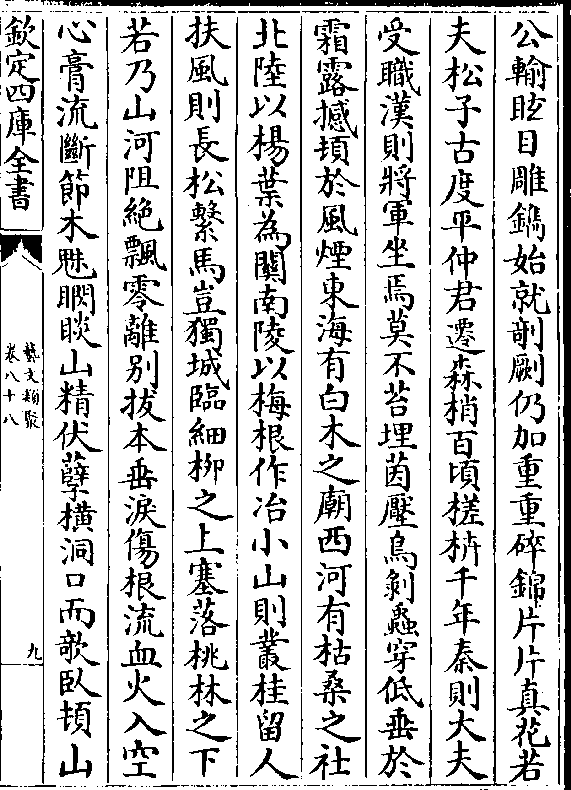 公輸眩目雕鐫始就剞劂仍加重重碎錦片片真花若
夫松子古度平仲君遷森梢百頃槎枿千年秦則大夫
受職漢則將軍坐焉莫不苔埋菌壓鳥剝蟲穿低垂於
霜露撼頓於風煙東海有白木之廟西河有枯桑之社
北陸以楊葉為關南陵以梅根作冶小山則叢桂留人
扶風則長松繫馬豈獨城臨細柳之上塞落桃林之下
若乃山河阻絶飄零離别拔本垂淚傷根流血火入空
心膏流斷節木魅睒山精伏孽橫洞口而欹卧頓山
欽定四庫全書
藝文類聚
卷八十八
九